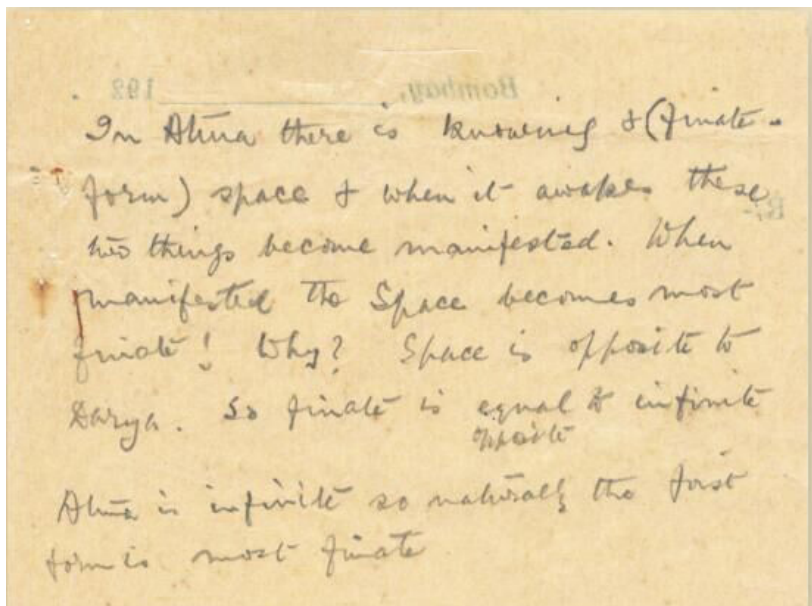 Bombay, 192
In Atma there is knowing & (finate-
form) space & when it awakes these
two things become manifested. When
manifested the Space becomes most
finate! Why? Space is opposite to
Darya. So finate is equal & infinite
opposite
Atma is infinite so naturally the first
form is most finate